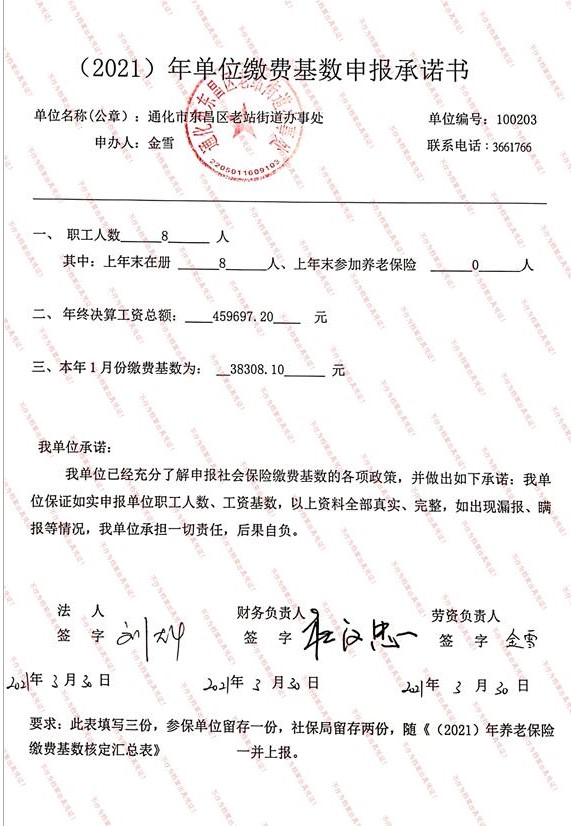 （2021）年单位缴费基数申报承诺书
单位名称(公章)：通化市东昌区老站街道办事处 单位编号：100203
申办人：金雪 联系电话：3661766
2205011609103
一、 职工人数 8 人
其中：上年末在册 8 人、上年末参加养老保险 0 人
二、年终决算工资总额： 459697.20 元
三、本年1月份缴费基数为： 38308.10 元
我单位承诺：
我单位已经充分了解申报社会保险缴费基数的各项政策，并做出如下承诺：我单
位保证如实申报单位职工人数、工资基数，以上资料全部真实、完整，如出现漏报、瞒
报等情况，我单位承担一切责任，后果自负。
法 人 财务负责人 劳资负责人
签 字 签 字 签 字 金雪
2021年 3 月 30 日 2021年 3 月 30 日 2021年 3 月 30 日
要求：此表填写三份，参保单位留存一份，社保局留存两份，随《（2021）年养老保险
缴费基数核定汇总表》 一并上报。